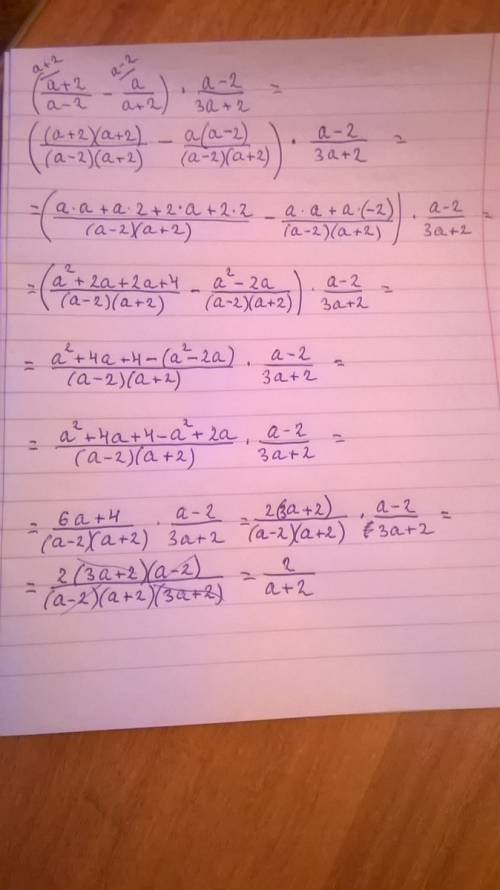 a+2 a-2
((a+2)/(a-2) - a/(a+2)) · (a-2)/(3a+2) =
(((a+2)(a+2))/((a-2)(a+2)) - (a(a-2))/((a-2)(a+2))) · (a-2)/(3a+2) =
=((a·a+a·2+2·a+2·2)/((a-2)(a+2)) - (a·a+a·(-2))/((a-2)(a+2))) · (a-2)/(3a+2) =
=((a²+2a+2a+4)/((a-2)(a+2)) - (a²-2a)/((a-2)(a+2))) · (a-2)/(3a+2) =
= (a²+4a+4-(a²-2a))/((a-2)(a+2)) · (a-2)/(3a+2) =
= (a²+4a+4-a²+2a)/((a-2)(a+2)) · (a-2)/(3a+2) =
= (6a+4)/((a-2)(a+2)) · (a-2)/(3a+2) = (2(3a+2))/((a-2)(a+2)) · (a-2)/(3a+2) =
= (2(3a+2)(a-2))/((a-2)(a+2)(3a+2)) = 2/(a+2)